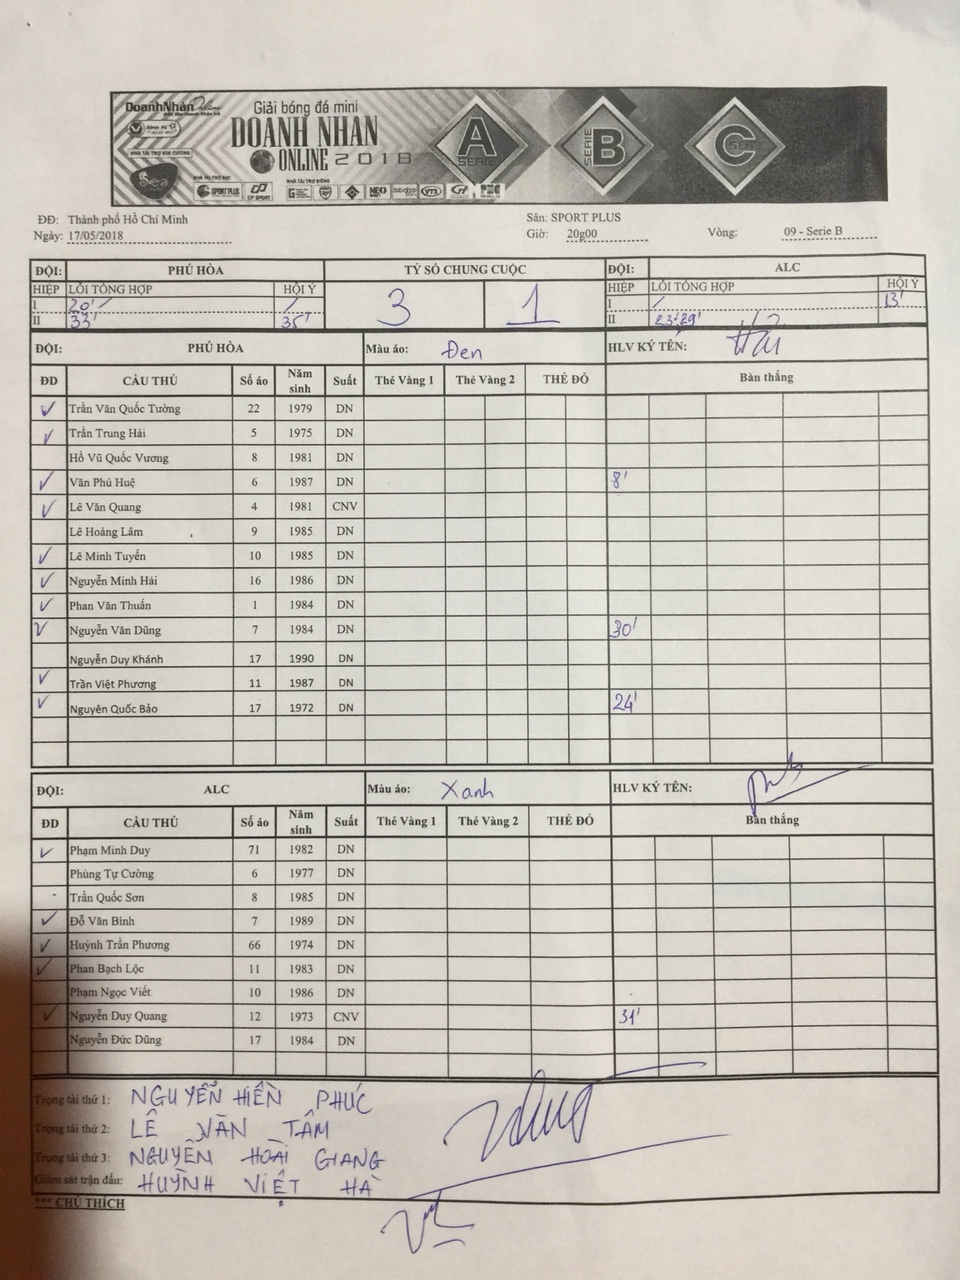 DoanhNhân Online
Giải bóng đá mini
DOANH NHÂN
ONLINE 2018
A SERIE
SERIE B
C SERIE
NHÀ TÀI TRỢ KIM CƯƠNG
NHÀ TÀI TRỢ BẠC
NHÀ TÀI TRỢ ĐỒNG
Sea
SPORT PLUS CP SPORT NEO
ĐĐ: Thành phố Hồ Chí Minh Sân: SPORT PLUS
Ngày: 17/05/2018 Giờ: 20g00 Vòng: 09 - Serie B
ĐỘI: PHÚ HÒA TỶ SỐ CHUNG CUỘC ĐỘI: ALC
HIỆP LỖI TỔNG HỢP HỘI Ý 3 1 HIỆP LỖI TỔNG HỢP HỘI Ý
I 20' / / I / 13'
II 33' 35' II 23' 29'
ĐỘI: PHÚ HÒA Màu áo: Đen HLV KÝ TÊN:
ĐD CẦU THỦ Số áo Năm sinh Suất Thẻ Vàng 1 Thẻ Vàng 2 THẺ ĐỎ Bàn thắng
✓ Trần Văn Quốc Tường 22 1979 DN
✓ Trần Trung Hải 5 1975 DN
Hồ Vũ Quốc Vương 8 1981 DN
✓ Văn Phú Huệ 6 1987 DN 8'
✓ Lê Văn Quang 4 1981 CNV
Lê Hoàng Lâm 9 1985 DN
✓ Lê Minh Tuyến 10 1985 DN
✓ Nguyễn Minh Hải 16 1986 DN
✓ Phan Văn Thuấn 1 1984 DN
✓ Nguyễn Văn Dũng 7 1984 DN 30'
Nguyễn Duy Khánh 17 1990 DN
✓ Trần Việt Phương 11 1987 DN
✓ Nguyên Quốc Bảo 17 1972 DN 24'
ĐỘI: ALC Màu áo: Xanh HLV KÝ TÊN:
ĐD CẦU THỦ Số áo Năm sinh Suất Thẻ Vàng 1 Thẻ Vàng 2 THẺ ĐỎ Bàn thắng
✓ Phạm Minh Duy 71 1982 DN
Phùng Tự Cường 6 1977 DN
Trần Quốc Sơn 8 1985 DN
✓ Đỗ Văn Bình 7 1989 DN
✓ Huỳnh Trần Phương 66 1974 DN
✓ Phan Bạch Lộc 11 1983 DN
Phạm Ngọc Viết 10 1986 DN
✓ Nguyễn Duy Quang 12 1973 CNV 31'
Nguyễn Đức Dũng 17 1984 DN
Trọng tài thứ 1: NGUYỄN HIỀN PHÚC
Trọng tài thứ 2: LÊ VĂN TÂM
Trọng tài thứ 3: NGUYỄN HOÀI GIANG
Giám sát trận đấu: HUỲNH VIỆT HÀ
*** CHÚ THÍCH